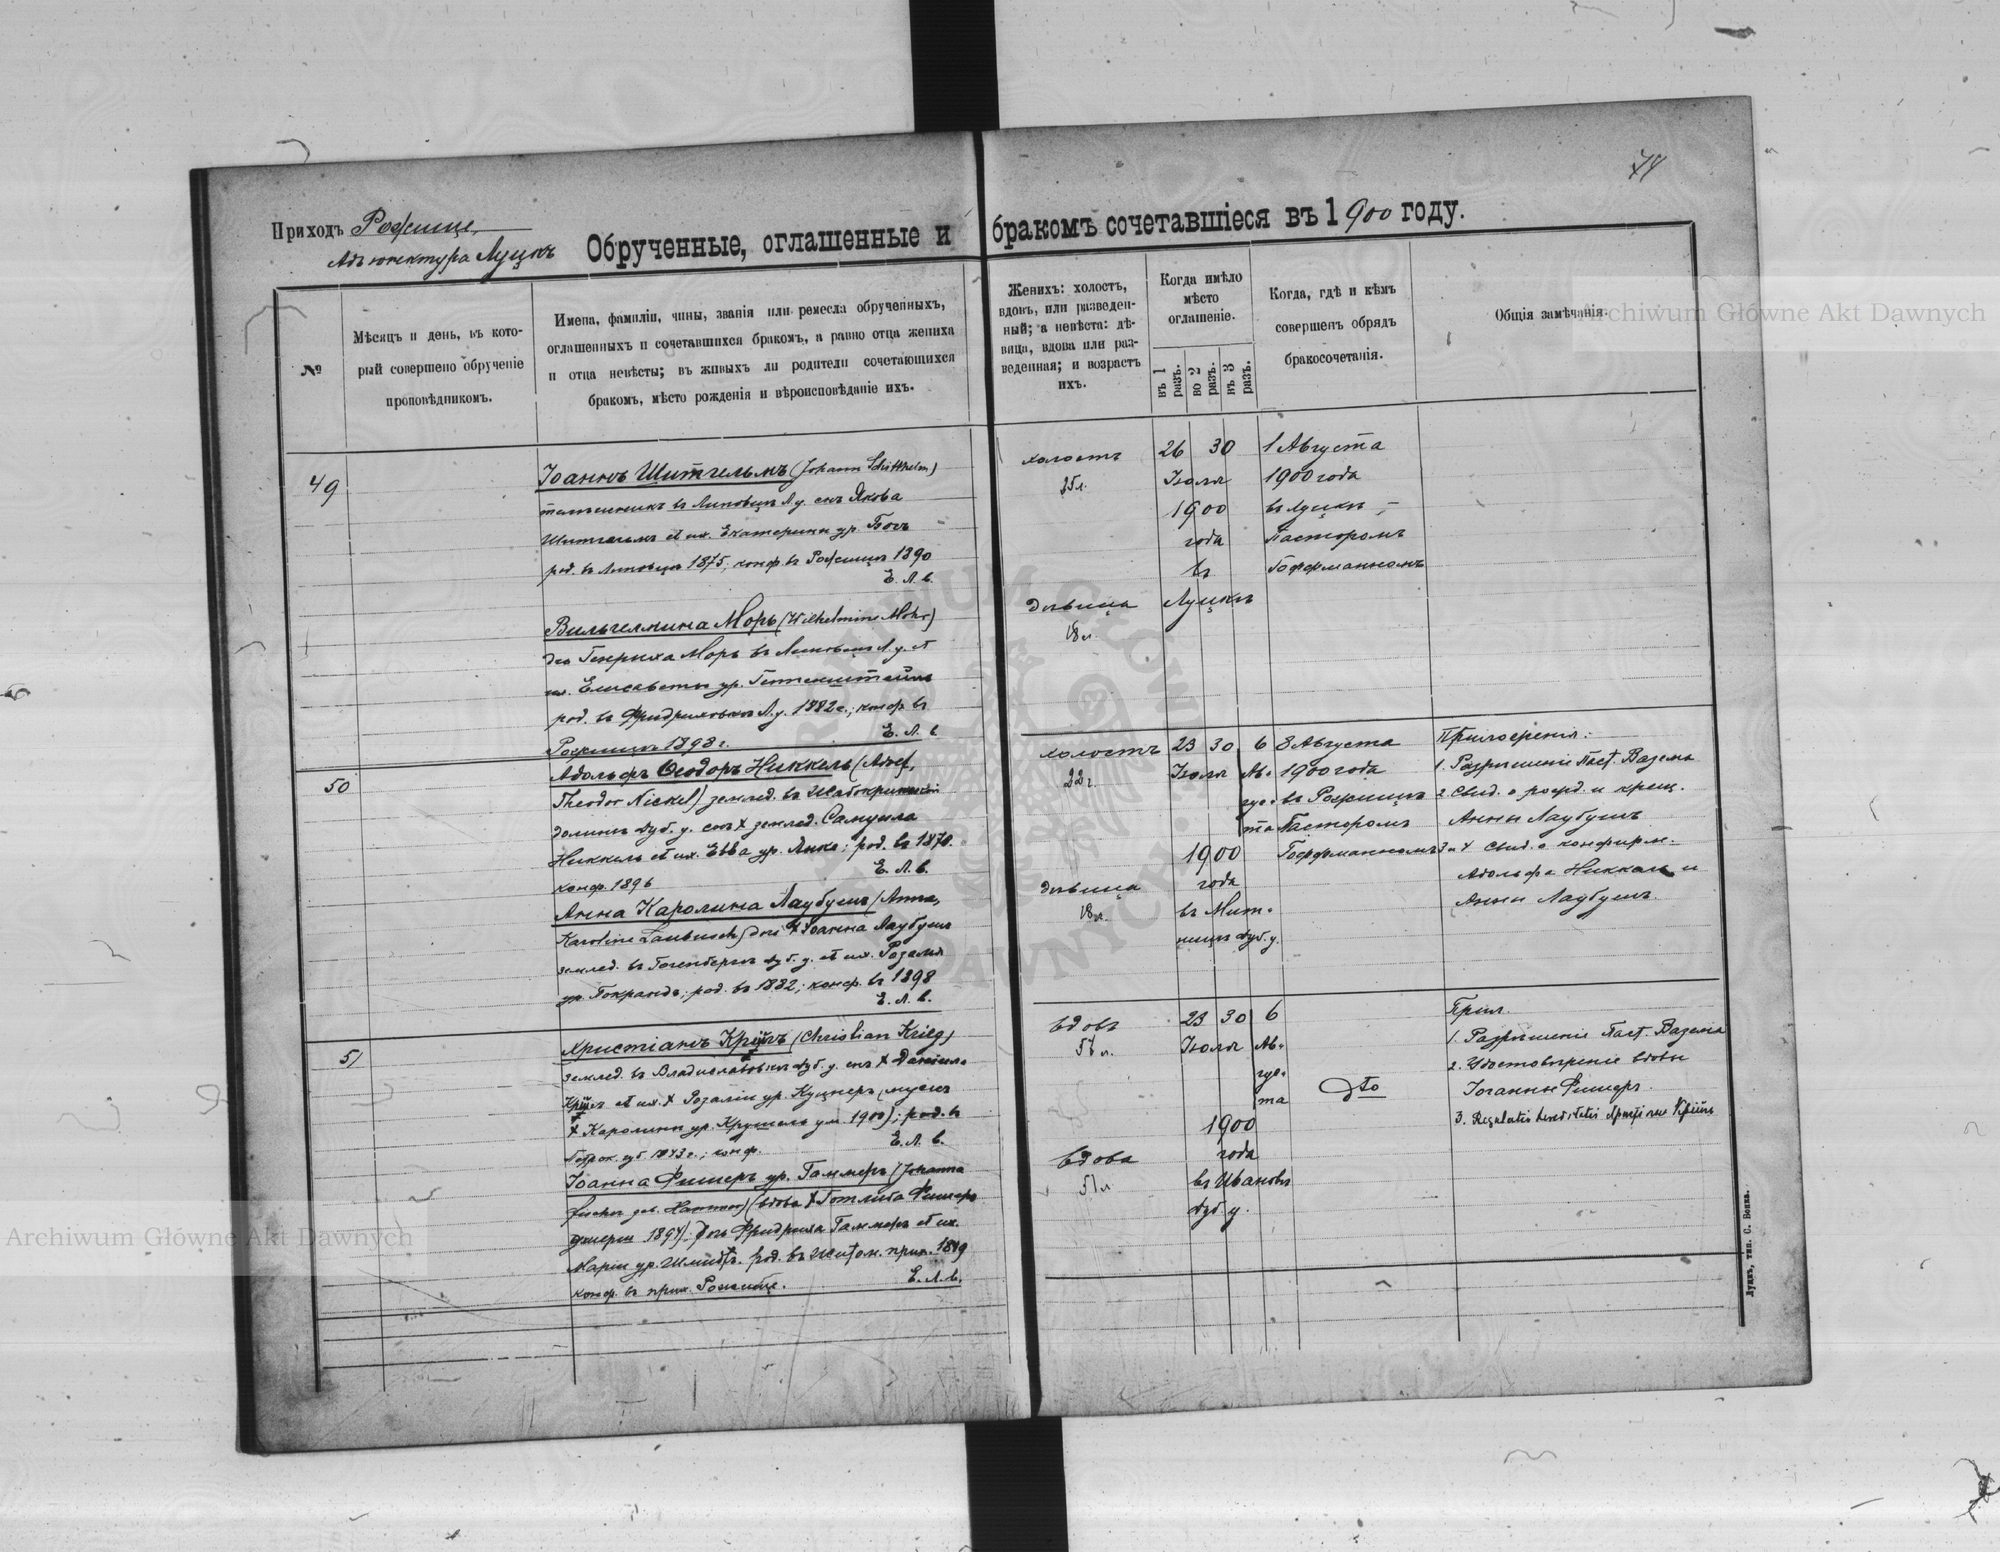 74
Приходъ Рожище,
Адъюнктура Луцкъ
Обрученные, оглашенные и бракомъ сочетавшіеся въ 1900 году.
№
Мѣсяцъ и день, въ кото-
рый совершено обрученіе
проповѣдникомъ.
Имена, фамиліи, чины, званія или ремесла обрученныхъ,
оглашенныхъ и сочетавшихся бракомъ, а равно отца жениха
и отца невѣсты; въ живыхъ ли родители сочетающихся
бракомъ, мѣсто рожденія и вѣроисповѣданіе ихъ.
Женихъ: холостъ,
вдовъ, или разведен-
ный; а невѣста: дѣ-
вица, вдова или раз-
веденная; и возрастъ
ихъ.
Когда имѣло
мѣсто
оглашеніе.
въ 1 разъ.
во 2 разъ.
въ 3 разъ.
Когда, гдѣ и кѣмъ
совершенъ обрядъ
бракосочетанія.
Общія замѣчанія.
49
Іоаннъ Шитгельмъ (Johann Schitthelm)
въ Липовцѣ Л у. снъ Якова
Шитгельмъ и Екатерины ур.
род. въ Липовцѣ 1875; конф. въ Рожищѣ 1890
Е. Л. в.
Вильгелмина Моръ (Wilhelmine Mohr)
Генриха Моръ въ Липовцѣ Л. у. и
Елисаветы ур.
род. въ Л. у. 1882 г.; конф. въ
Рожищѣ 1898 г. Е. Л. в.
холостъ
25 л.
дѣвица
18 л.
26 30
Іюля
1900
года
въ
Луцкѣ
1 Августа
1900 года
въ Луцкѣ,
Пасторомъ
Гофферманномъ
50
Адольфъ Ѳеодоръ Никкель (Adolf,
Theodor Nickel) землед. въ
Дуб. у. снъ ✝ землед. Самуила
Никкель и Евва ур. ; род. въ 1878.
конф. 1896 Е. Л. в.
Анна Каролина Лаубушъ (Anna,
Karoline Laubusch) дочь ✝ Іоанна Лаубушъ
землед. въ Дуб. у. и Розалія
ур. ; род. въ 1882; конф. въ 1898
Е. Л. в.
холостъ
22 г.
дѣвица
18 л.
23 30 6
Іюля Ав-
гус-
та
1900
года
въ Мит-
ницѣ Дуб. у.
8 Августа
1900 года
въ Рожищѣ
Пасторомъ
Гофферманномъ
Приложенія:
1. Разрѣшеніе Паст. Вазема
2. Свид. о рожд. и крещ.
Анны Лаубушъ
3 и 4 Свид. о конфирм.
Адольфа Никкель и
Анны Лаубушъ.
51
Христіанъ Кригъ (Christian Krieg)
землед. въ Владиславовкѣ Дуб. у. снъ ✝
✝ Розаліи ур. Куцнеръ
✝ Каролины ур. ум. 1900); род. въ
1843 г.; конф. Е. Л. в.
Іоанна Фишеръ ур. Гаммеръ (Johanna
Fischer geb. Hammer) (вдова ✝ Готлиба Фишеръ
1894). Дочь Фридриха Гаммеръ и
Маріи ур. Шмидтъ. род. въ Житом. прих. 1849
конф. въ прих. Рожище. Е. Л. в.
вдовъ
57 л.
вдова
51 л.
23 30 6
Іюля Ав-
гус-
та
1900
года
въ Ивановкѣ
Дуб. у.
Dto
Прил.
1. Разрѣшеніе Паст. Вазема
2. Удостовѣреніе вдовы
Іоганны Фишеръ.
3.
Луцкъ, тип. С. Бокка.
Archiwum Główne Akt Dawnych
Archiwum Główne Akt Dawnych